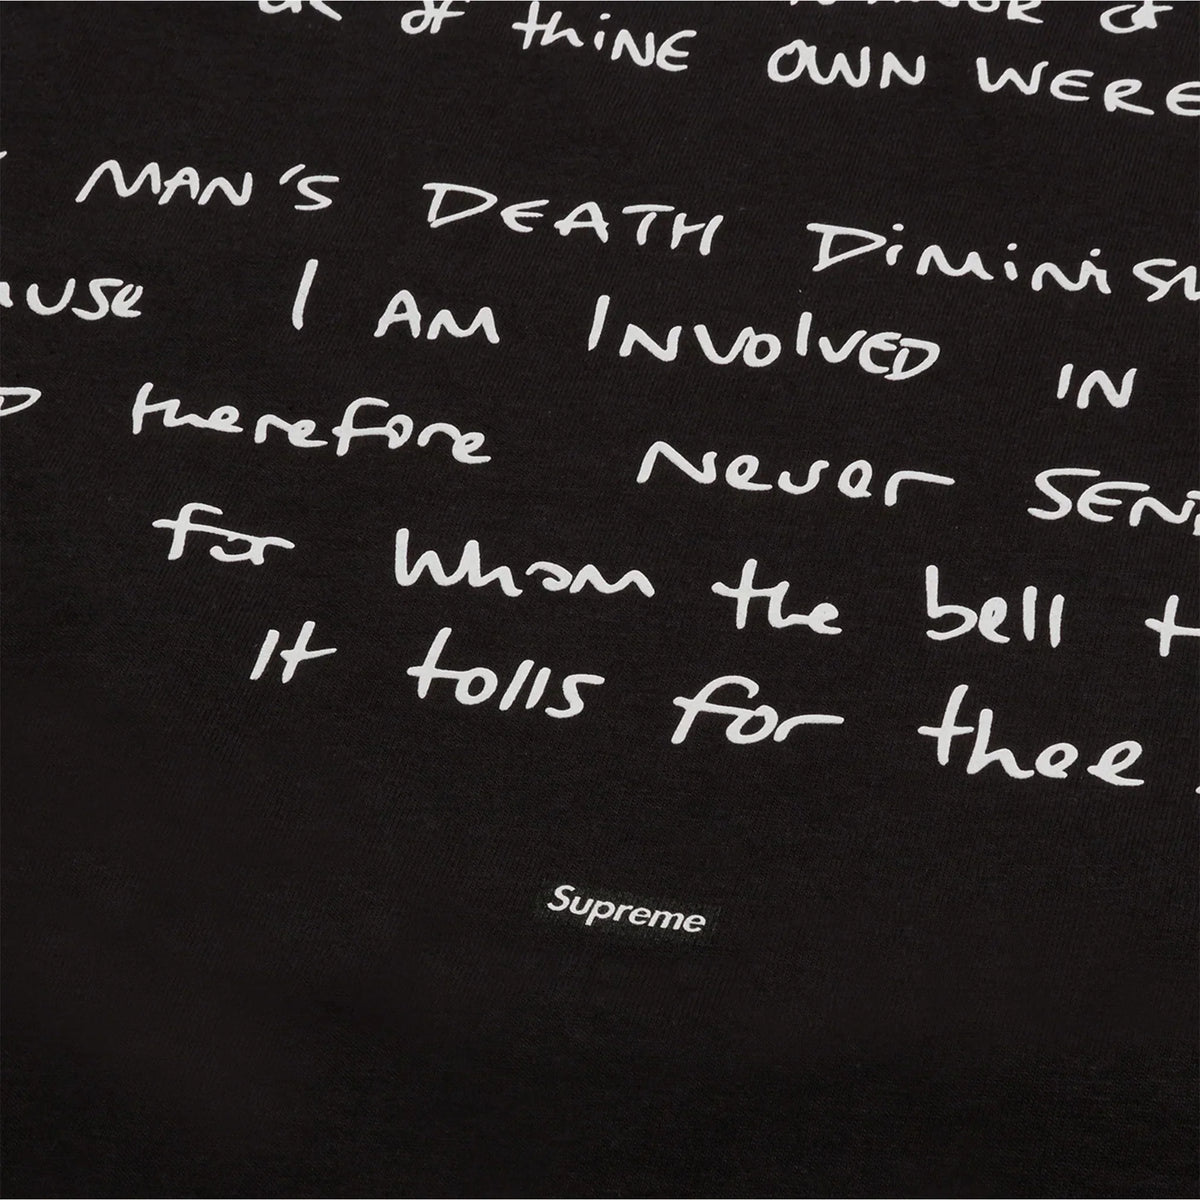 OR of thiNE OWN WERE
MAN'S DEATH DiMiNiSH
ause I AM INVOLVED IN
D therefore Never SEND
for Whom the bell t
It tolls for thee.
Supreme